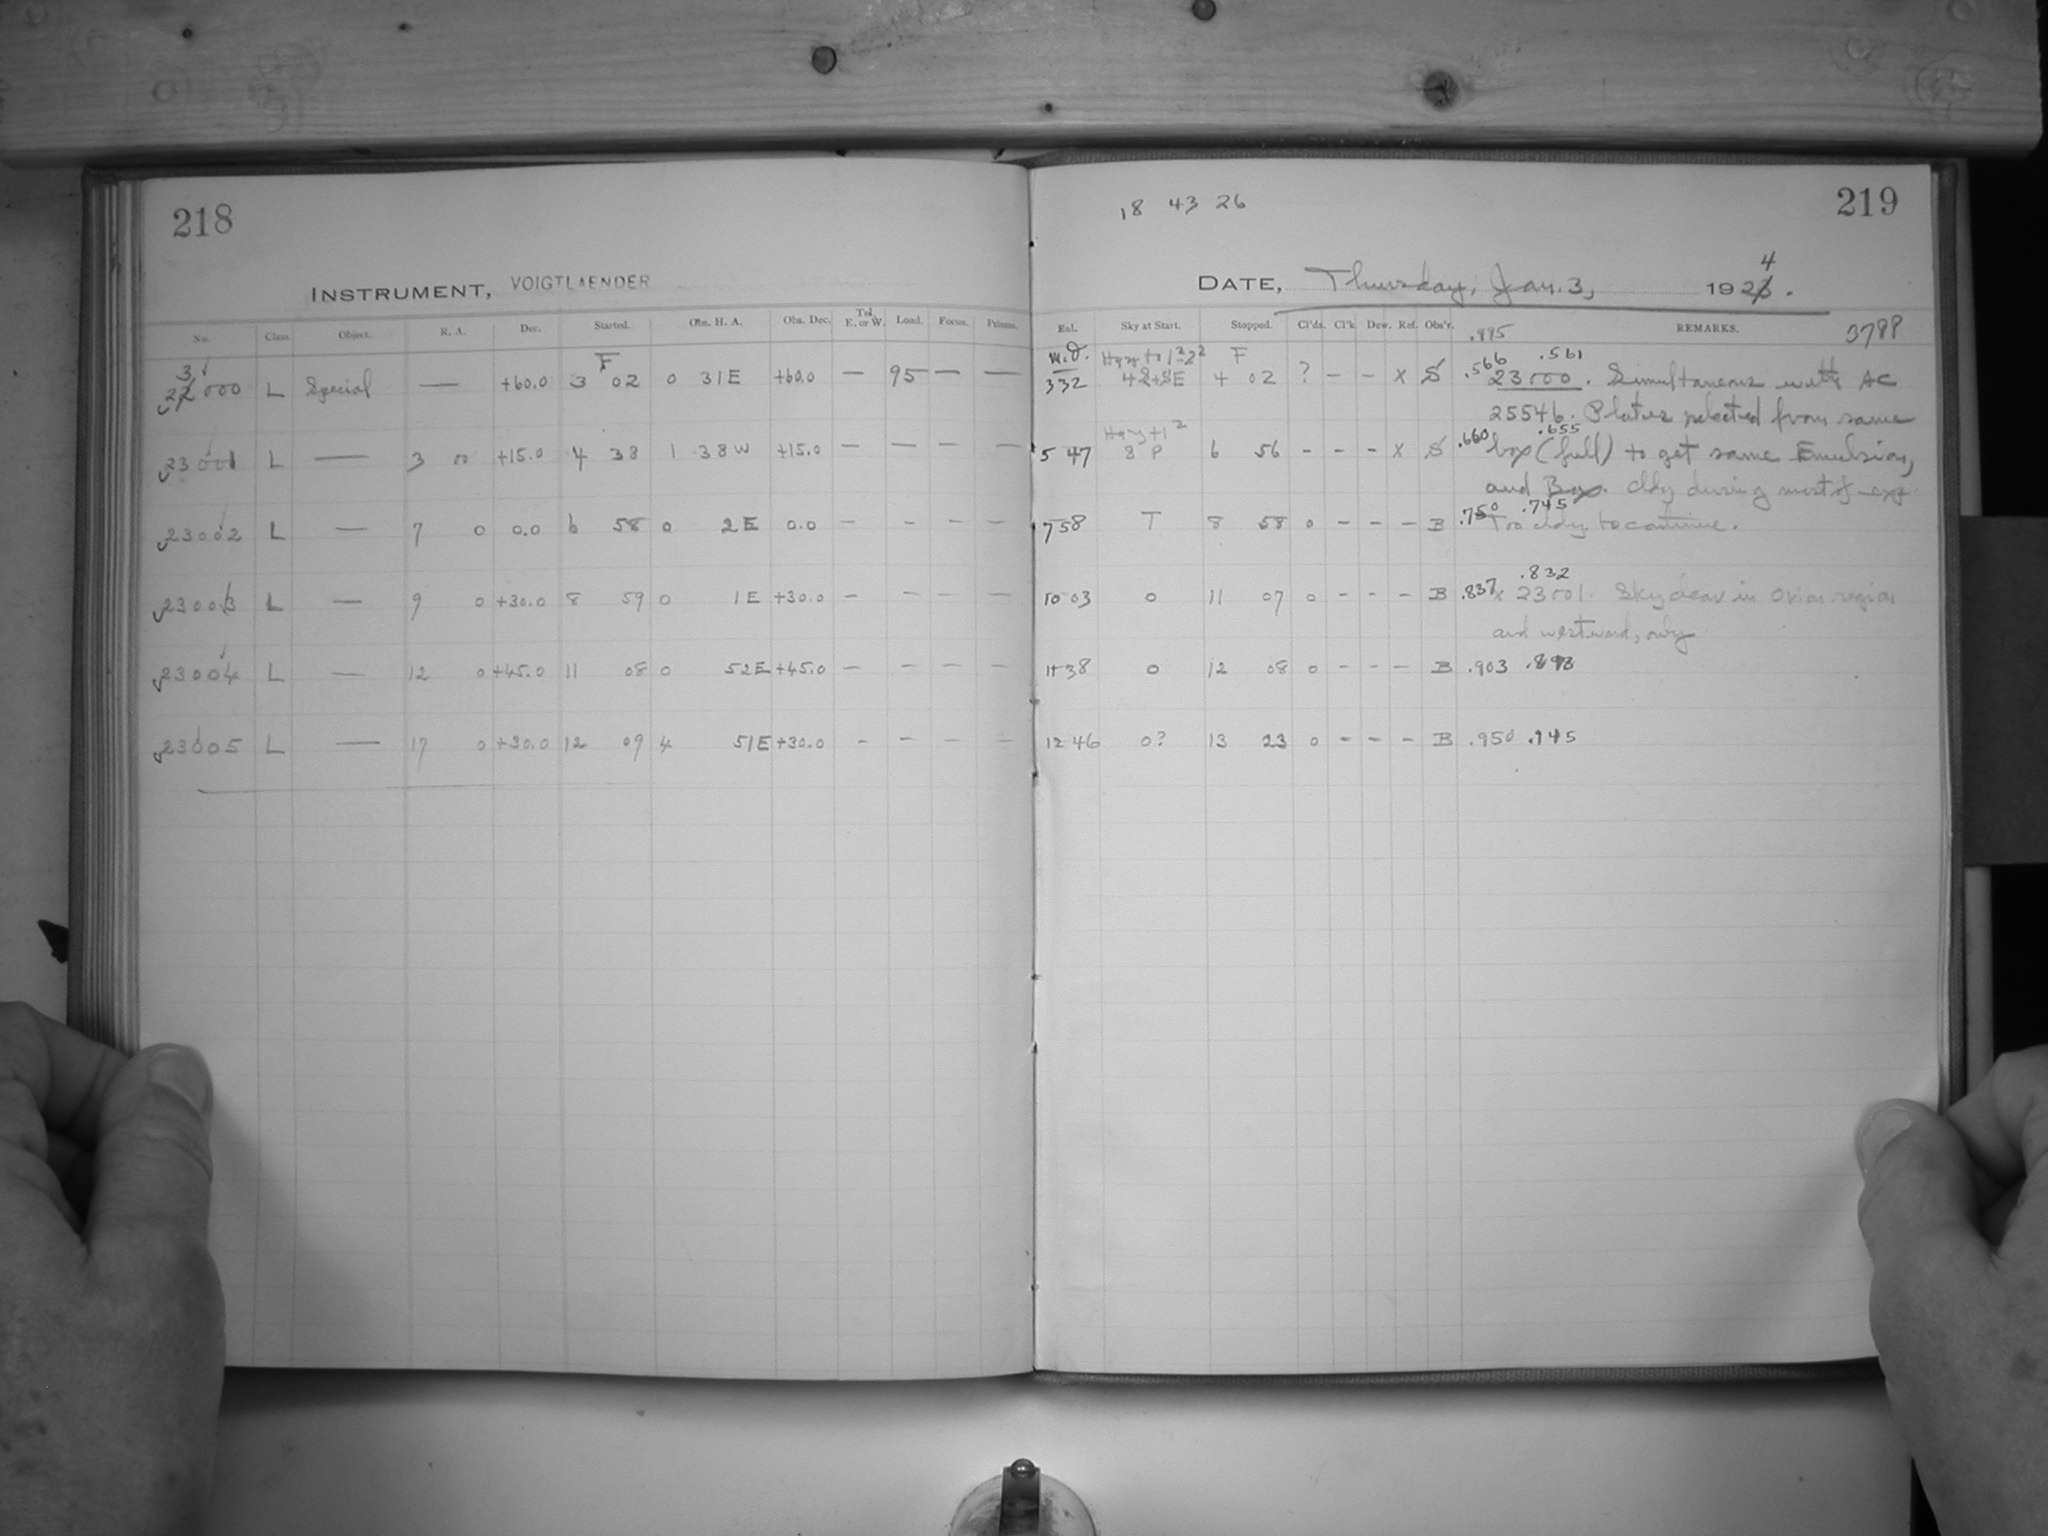 218
INSTRUMENT, VOIGTLAENDER
No. Class. Object. R. A. Dec. Started. Obs. H. A. Obs. Dec. Tel. E. or W. Load. Focus. Prisms.
23000 L Special — +60.0 3 F 02 0 31E +60.0 — 95 — —
23001 L — 3 00 +15.0 4 38 1 38W +15.0 — — — —
23002 L — 7 0 0.0 6 58 0 2E 0.0 - - - -
23003 L — 9 0 +30.0 8 59 0 1E +30.0 - - - -
23004 L — 12 0 +45.0 11 08 0 52E +45.0 — - - -
23005 L — 17 0 +30.0 12 09 4 51E +30.0 - - - -
18 43 26
219
DATE, Thursday, Jan. 3, 1924.
Sky at Start. Stopped. Cl'ds. Cl'k. Dew. Ref. Obs'r. .895 REMARKS. 3788
332 F 4 02 ? - - x S .566 .561 23000. Simultaneous with AC
25546. Plates selected from same
5 47 6 56 - - - x S .660 .655 box (full) to get same Emulsion,
and Box. Cldy during most of exp.
7 58 T 8 58 0 - - - B .750 .745 Too cldy to continue.
10 03 0 11 07 0 - - - B .837 .832 x 23001. Sky clear in Orion region
and westward, only
11 38 0 12 08 0 - - - B .903 .898
12 46 0? 13 23 0 - - - B .950 .945